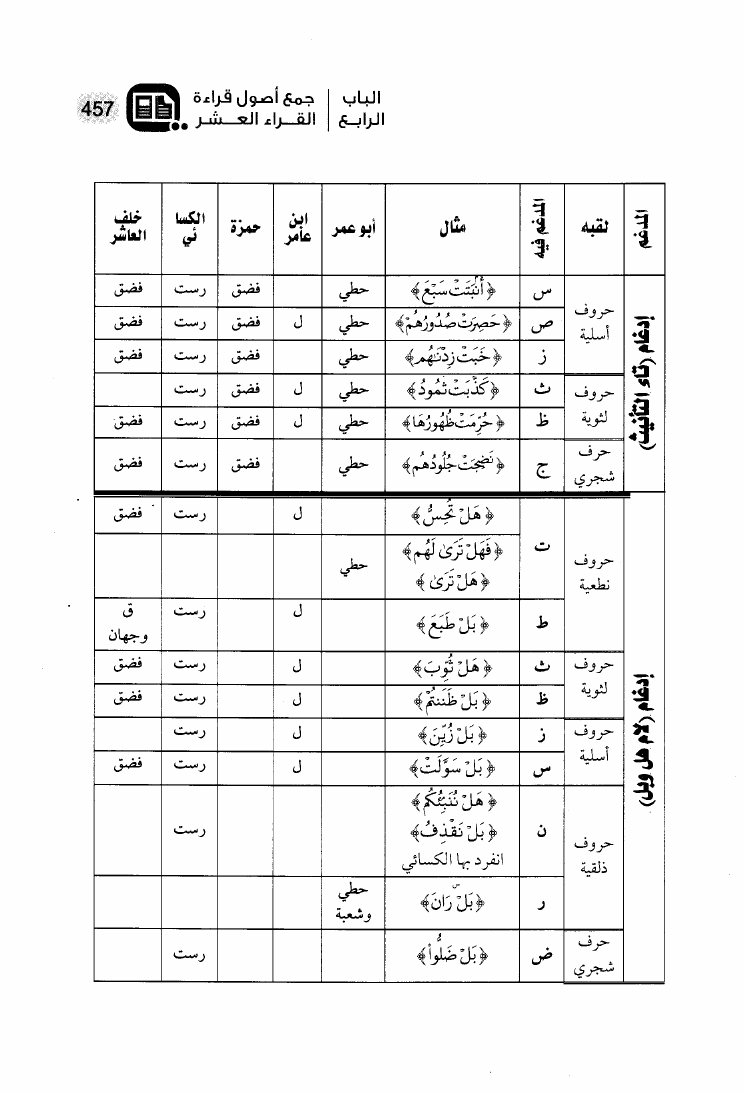 الباب | جمع أصول قراءة
الرابع | القراء العشر
457
المدغم | لقبه | المدغم فيه | مثال | أبو عمر | ابن عامر | حمزة | الكسائي | خلف العاشر
إدغام (تاء التأنيث) | حروف أسلية | س | ﴿أَنۢبَتَتۡ سَبۡعَ﴾ | حطي | | فضق | رست | فضق
ص | ﴿حَصِرَتۡ صُدُورُهُمۡ﴾ | حطي | ل | فضق | رست | فضق
ز | ﴿خَبَتۡ زِدۡنَٰهُمۡ﴾ | حطي | | فضق | رست | فضق
حروف لثوية | ث | ﴿كَذَّبَتۡ ثَمُودُ﴾ | حطي | ل | فضق | رست |
ظ | ﴿حُرِّمَتۡ ظُهُورُهَا﴾ | حطي | ل | فضق | رست | فضق
حرف شجري | ج | ﴿نَضِجَتۡ جُلُودُهُم﴾ | حطي | | فضق | رست | فضق
إدغام (لام هل وبل) | حروف نطعية | ت | ﴿هَلۡ تُحِسُّ﴾ | | ل | | رست | فضق
﴿فَهَلۡ تَرَىٰ لَهُم﴾
﴿هَلۡ تَرَىٰ﴾ | حطي
ط | ﴿بَلۡ طَبَعَ﴾ | | ل | | رست | ق وجهان
حروف لثوية | ث | ﴿هَلۡ ثُوِّبَ﴾ | | ل | | رست | فضق
ظ | ﴿بَلۡ ظَنَنتُمۡ﴾ | | ل | | رست | فضق
حروف أسلية | ز | ﴿بَلۡ زُيِّنَ﴾ | | ل | | رست |
س | ﴿بَلۡ سَوَّلَتۡ﴾ | | ل | | رست | فضق
حروف ذلقية | ن | ﴿هَلۡ نُنَبِّئُكُم﴾
﴿بَلۡ نَقۡذِفُ﴾ | | | | رست |
انفرد بها الكسائي
ر | ﴿بَلۡۜ رَانَ﴾ | حطي وشعبة
حرف شجري | ض | ﴿بَلۡ ضَلُّواْ﴾ | | | | رست |